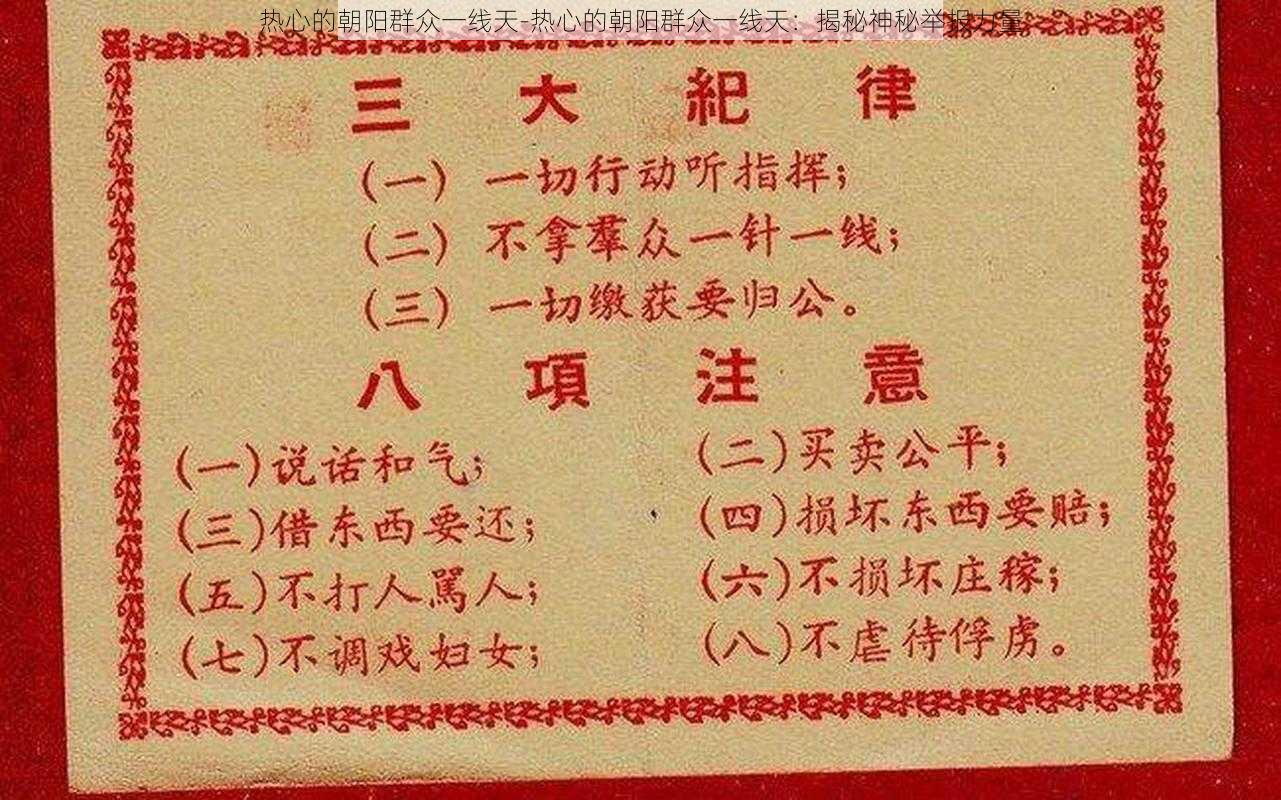 热心的朝阳群众一线天-热心的朝阳群众一线天：揭秘神秘举报力量
三大紀律
(一) 一切行动听指挥；
(二) 不拿羣众一针一线；
(三) 一切缴获要归公。
八項注意
(一)说话和气；
(二)买卖公平；
(三)借东西要还；
(四)损坏东西要赔；
(五)不打人駡人；
(六)不损坏庄稼；
(七)不调戏妇女；
(八)不虐待俘虏。